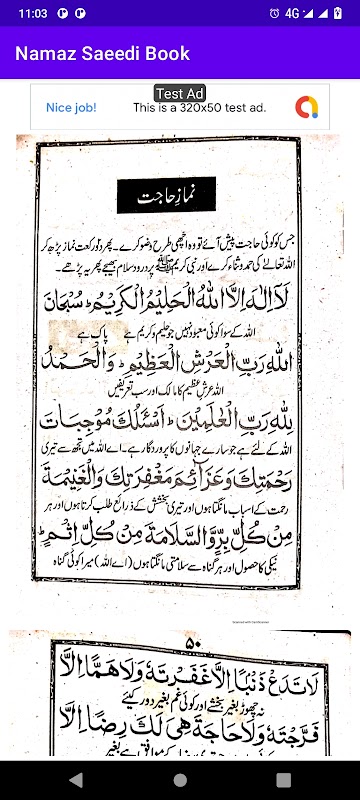 11:03
4G
Namaz Saeedi Book
Test Ad
Nice job!
This is a 320x50 test ad.
نمازِ حاجت
جس کو کوئی حاجت پیش آئے تو وہ اچھی طرح وضو کرے۔ پھر دو رکعت نماز پڑھ کر
اللہ تعالےٰ کی حمد و ثناء کرے اور نبی کریم ﷺ پر درود سلام بھیجے پھر یہ پڑھے۔
لَآ اِلٰهَ اِلَّا اللهُ الْحَلِيْمُ الْكَرِيْمُ ؕ سُبْحَانَ
اللہ کے سوا کوئی معبود نہیں جو حلیم و کریم ہے پاک ہے
اللهِ رَبِّ الْعَرْشِ الْعَظِيْمِ ؕ وَالْحَمْدُ
اللہ عرشِ عظیم کا مالک اور سب تعریفیں
لِلّٰهِ رَبِّ الْعٰلَمِيْنَ ؕ اَسْئَلُكَ مُوْجِبَاتِ
اللہ کے لئے ہے جو سارے جہانوں کا پروردگار ہے۔ اے اللہ میں تجھ سے تیری
رَحْمَتِكَ وَعَزَآئِمَ مَغْفِرَتِكَ وَالْغَنِيْمَةَ
رحمت کے اسباب مانگتا ہوں اور تیری بخشش کے ذرائع طلب کرتا ہوں اور ہر
مِنْ كُلِّ بِرٍّ وَّالسَّلَامَةَ مِنْ كُلِّ اِثْمٍ ؕ
نیکی کا حصول اور ہر گناہ سے سلامتی مانگتا ہوں (اے اللہ) میرا کوئی گناہ
Scanned with CamScanner
۵۰
لَا تَدَعْ ذَنْبًا اِلَّا غَفَرْتَهٗ وَلَا هَمًّا اِلَّا
نہ چھوڑ بغیر بخشے اور کوئی غم بغیر دور کیئے
فَرَّجْتَهٗ وَلَا حَاجَةً هِىَ لَكَ رِضًا اِلَّا